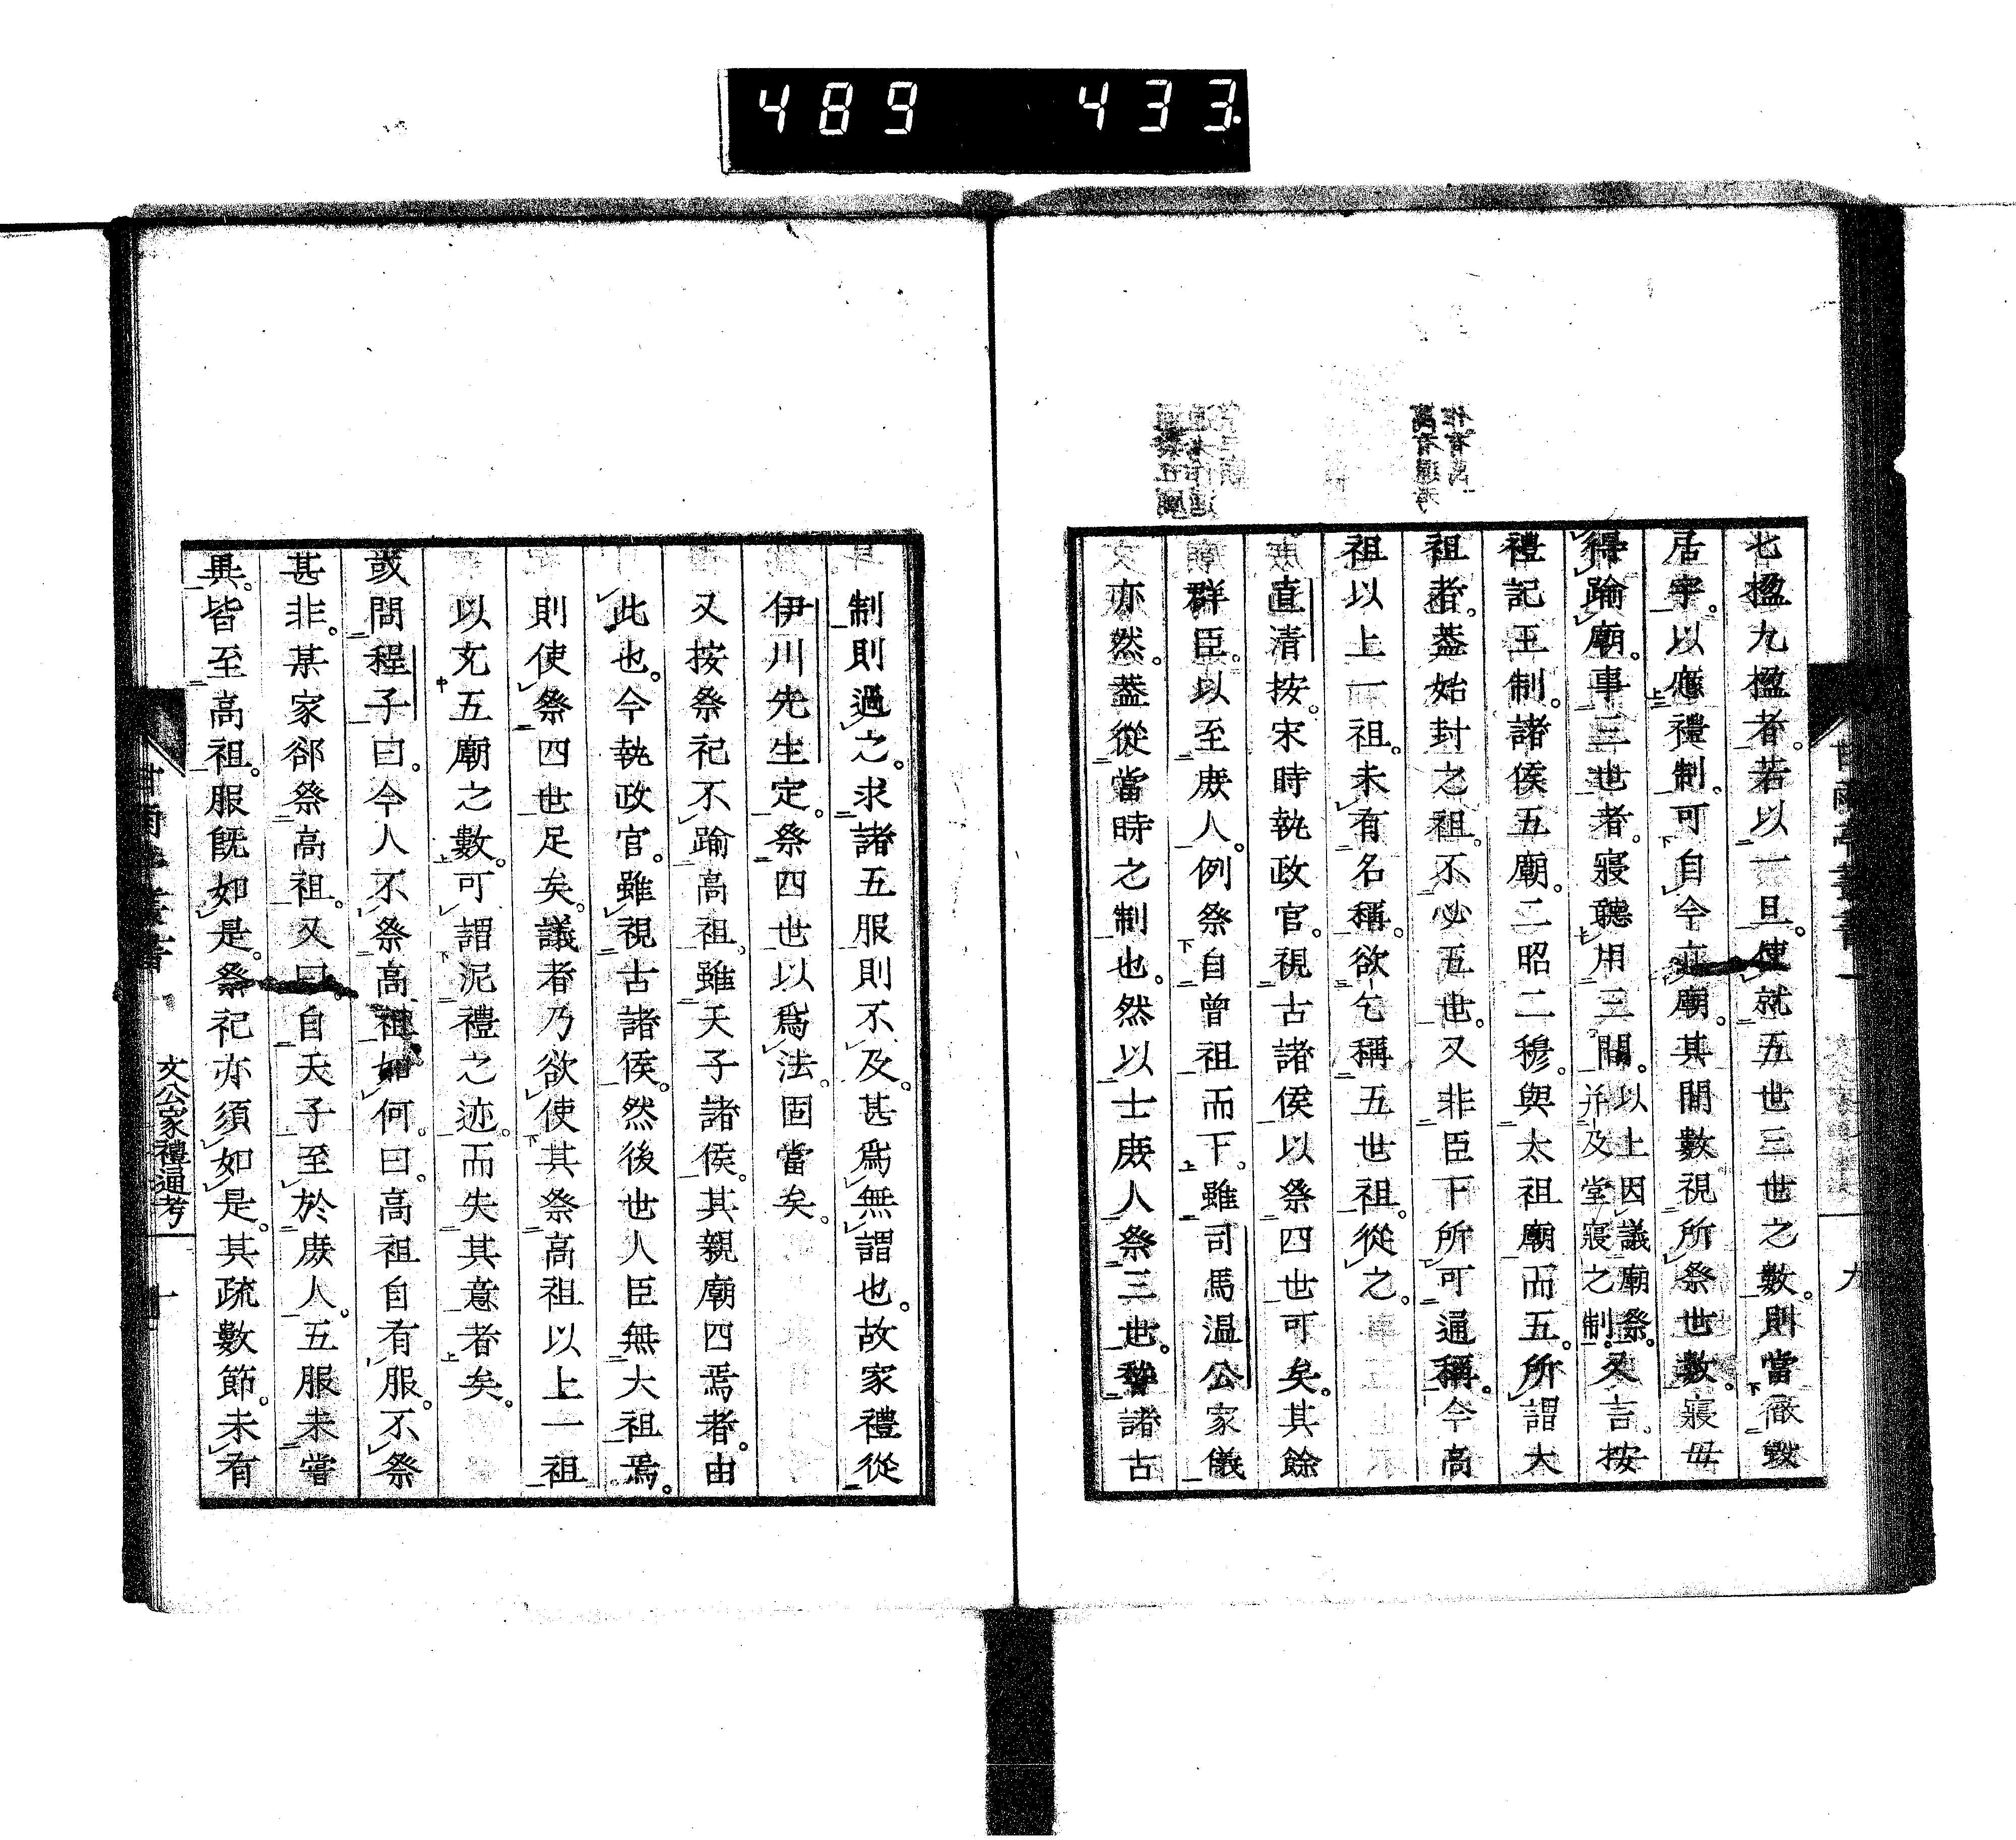 489 433
七楹九楹者。若以一旦。使就五世三世之數。則當徹毀
居宇。以應禮制。可自今立廟。其間數視所祭世數。寢毋
得踰廟。事三世者。寢聽用三間。以上因議廟祭。并及堂寢之制。又言。按
禮記王制。諸侯五廟。二昭二穆。與太祖廟而五。所謂大
祖者。葢始封之祖。不必五世。又非臣下所可通稱。今高
祖以上一祖。未有名稱。欲乞稱五世祖。從之。
直清按。宋時執政官。視古諸侯以祭四世可矣。其餘
群臣。以至庶人。例祭自曾祖而下。雖司馬温公家儀
亦然。葢從當時之制也。然以士庶人祭三世。揆諸古
文公家禮通考
制則過之。求諸五服則不及。甚爲無謂也。故家禮從
伊川先生定。祭四世以爲法。固當矣。
又按祭祀不踰高祖。雖天子諸侯。其親廟四焉者。由
此也。今執政官。雖視古諸侯。然後世人臣無大祖焉。
則使祭四世足矣。議者乃欲使其祭高祖以上一祖
以充五廟之數。可謂泥禮之迹。而失其意者矣。
或問程子曰。今人不祭高祖如何。曰。高祖自有服。不祭
甚非。某家郤祭高祖。又曰。自天子至於庶人。五服未嘗
異。皆至高祖。服既如是。祭祀亦須如是。其疏數節。未有